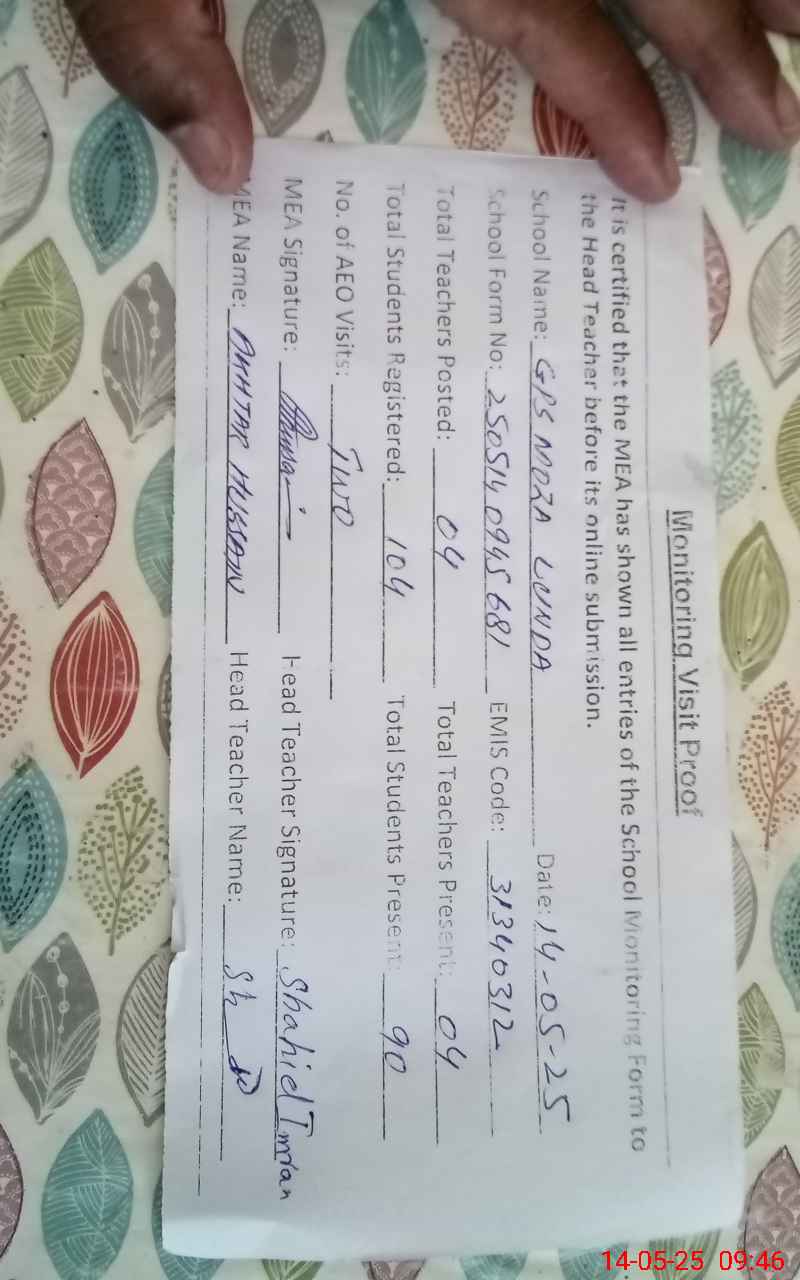 Monitoring Visit Proof
It is certified that the MEA has shown all entries of the School Monitoring Form to
the Head Teacher before its online submission.
School Name: GPS MOZA LUNDA Date: 14-05-25
School Form No: 250514 0945 681 EMIS Code: 31340312
Total Teachers Posted: 04 Total Teachers Present: 04
Total Students Registered: 104 Total Students Present: 90
No. of AEO Visits: TWO
MEA Signature: Head Teacher Signature: Shahid Imran
MEA Name: AKHTAR HUSSAIN Head Teacher Name:
14-05-25 09:46